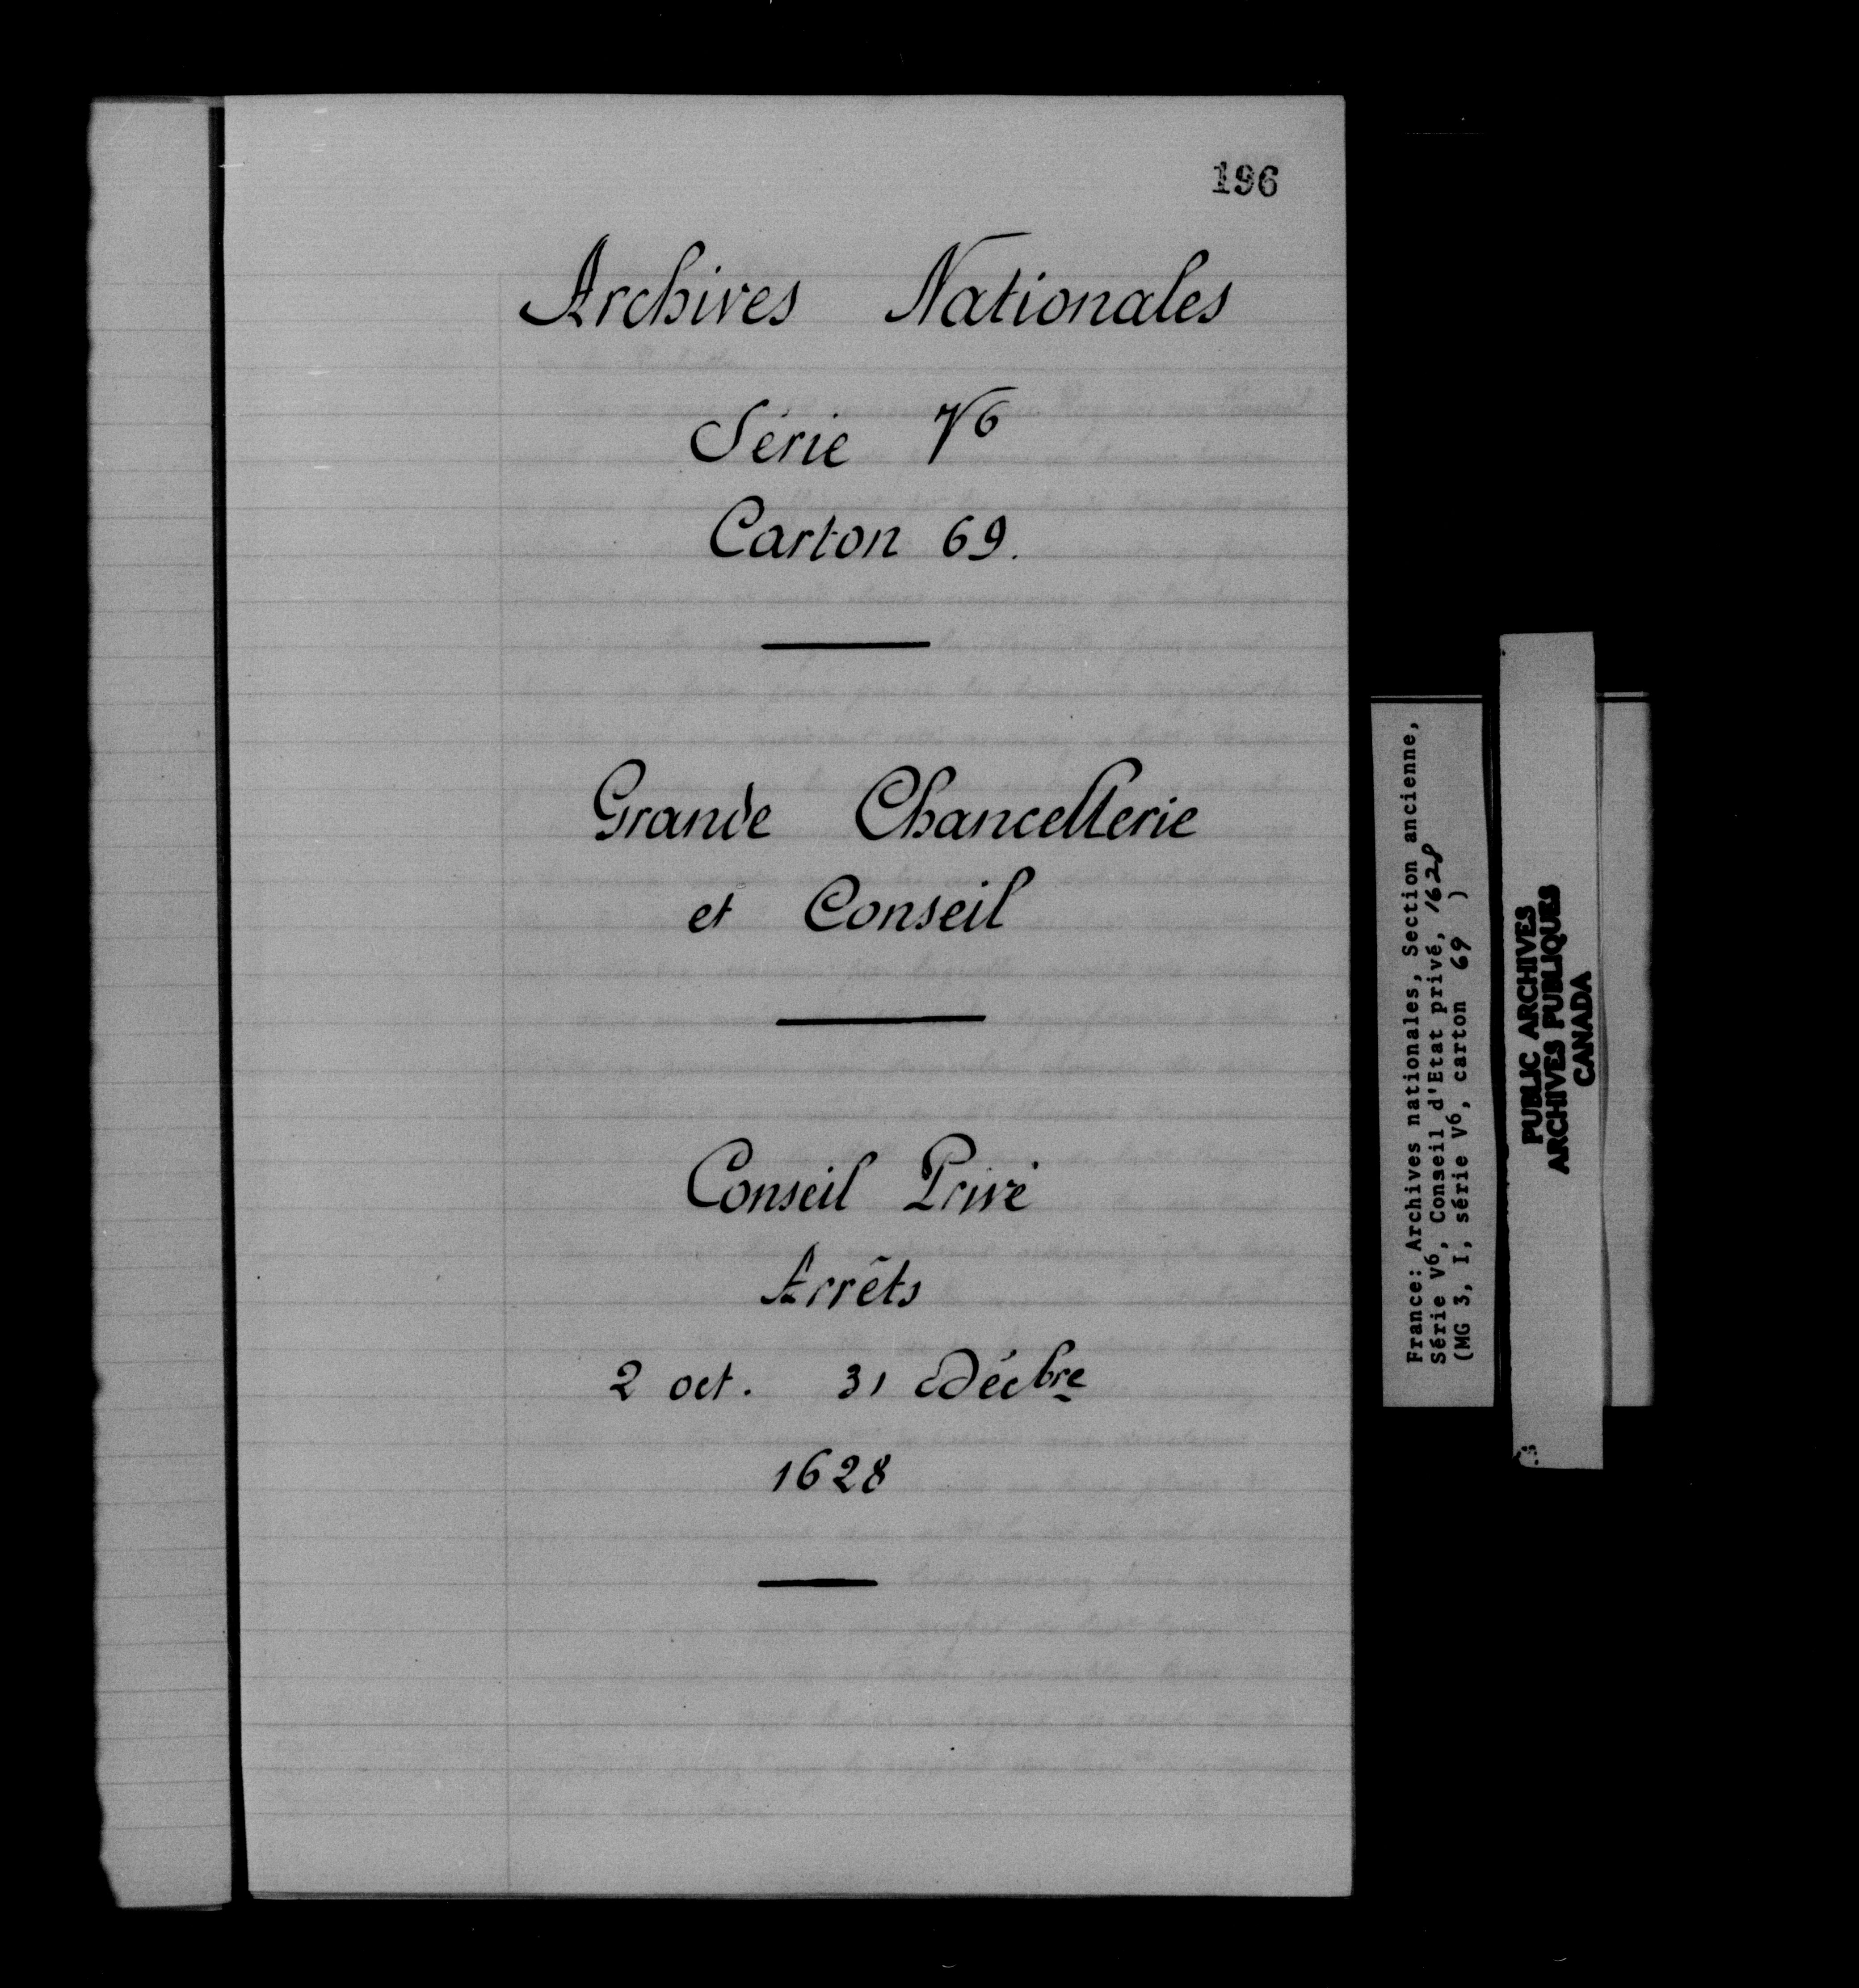 196
Archives Nationales
Série V6
Carton 69.
Grande Chancellerie
et Conseil
Conseil Privé
Arrêts
2 oct. 31 Décbre
1628
France: Archives nationales, Section ancienne,
Série V6, Conseil d'Etat privé, 1628
(MG 3, I, série V6, carton 69 )
PUBLIC ARCHIVES
ARCHIVES PUBLIQUES
CANADA